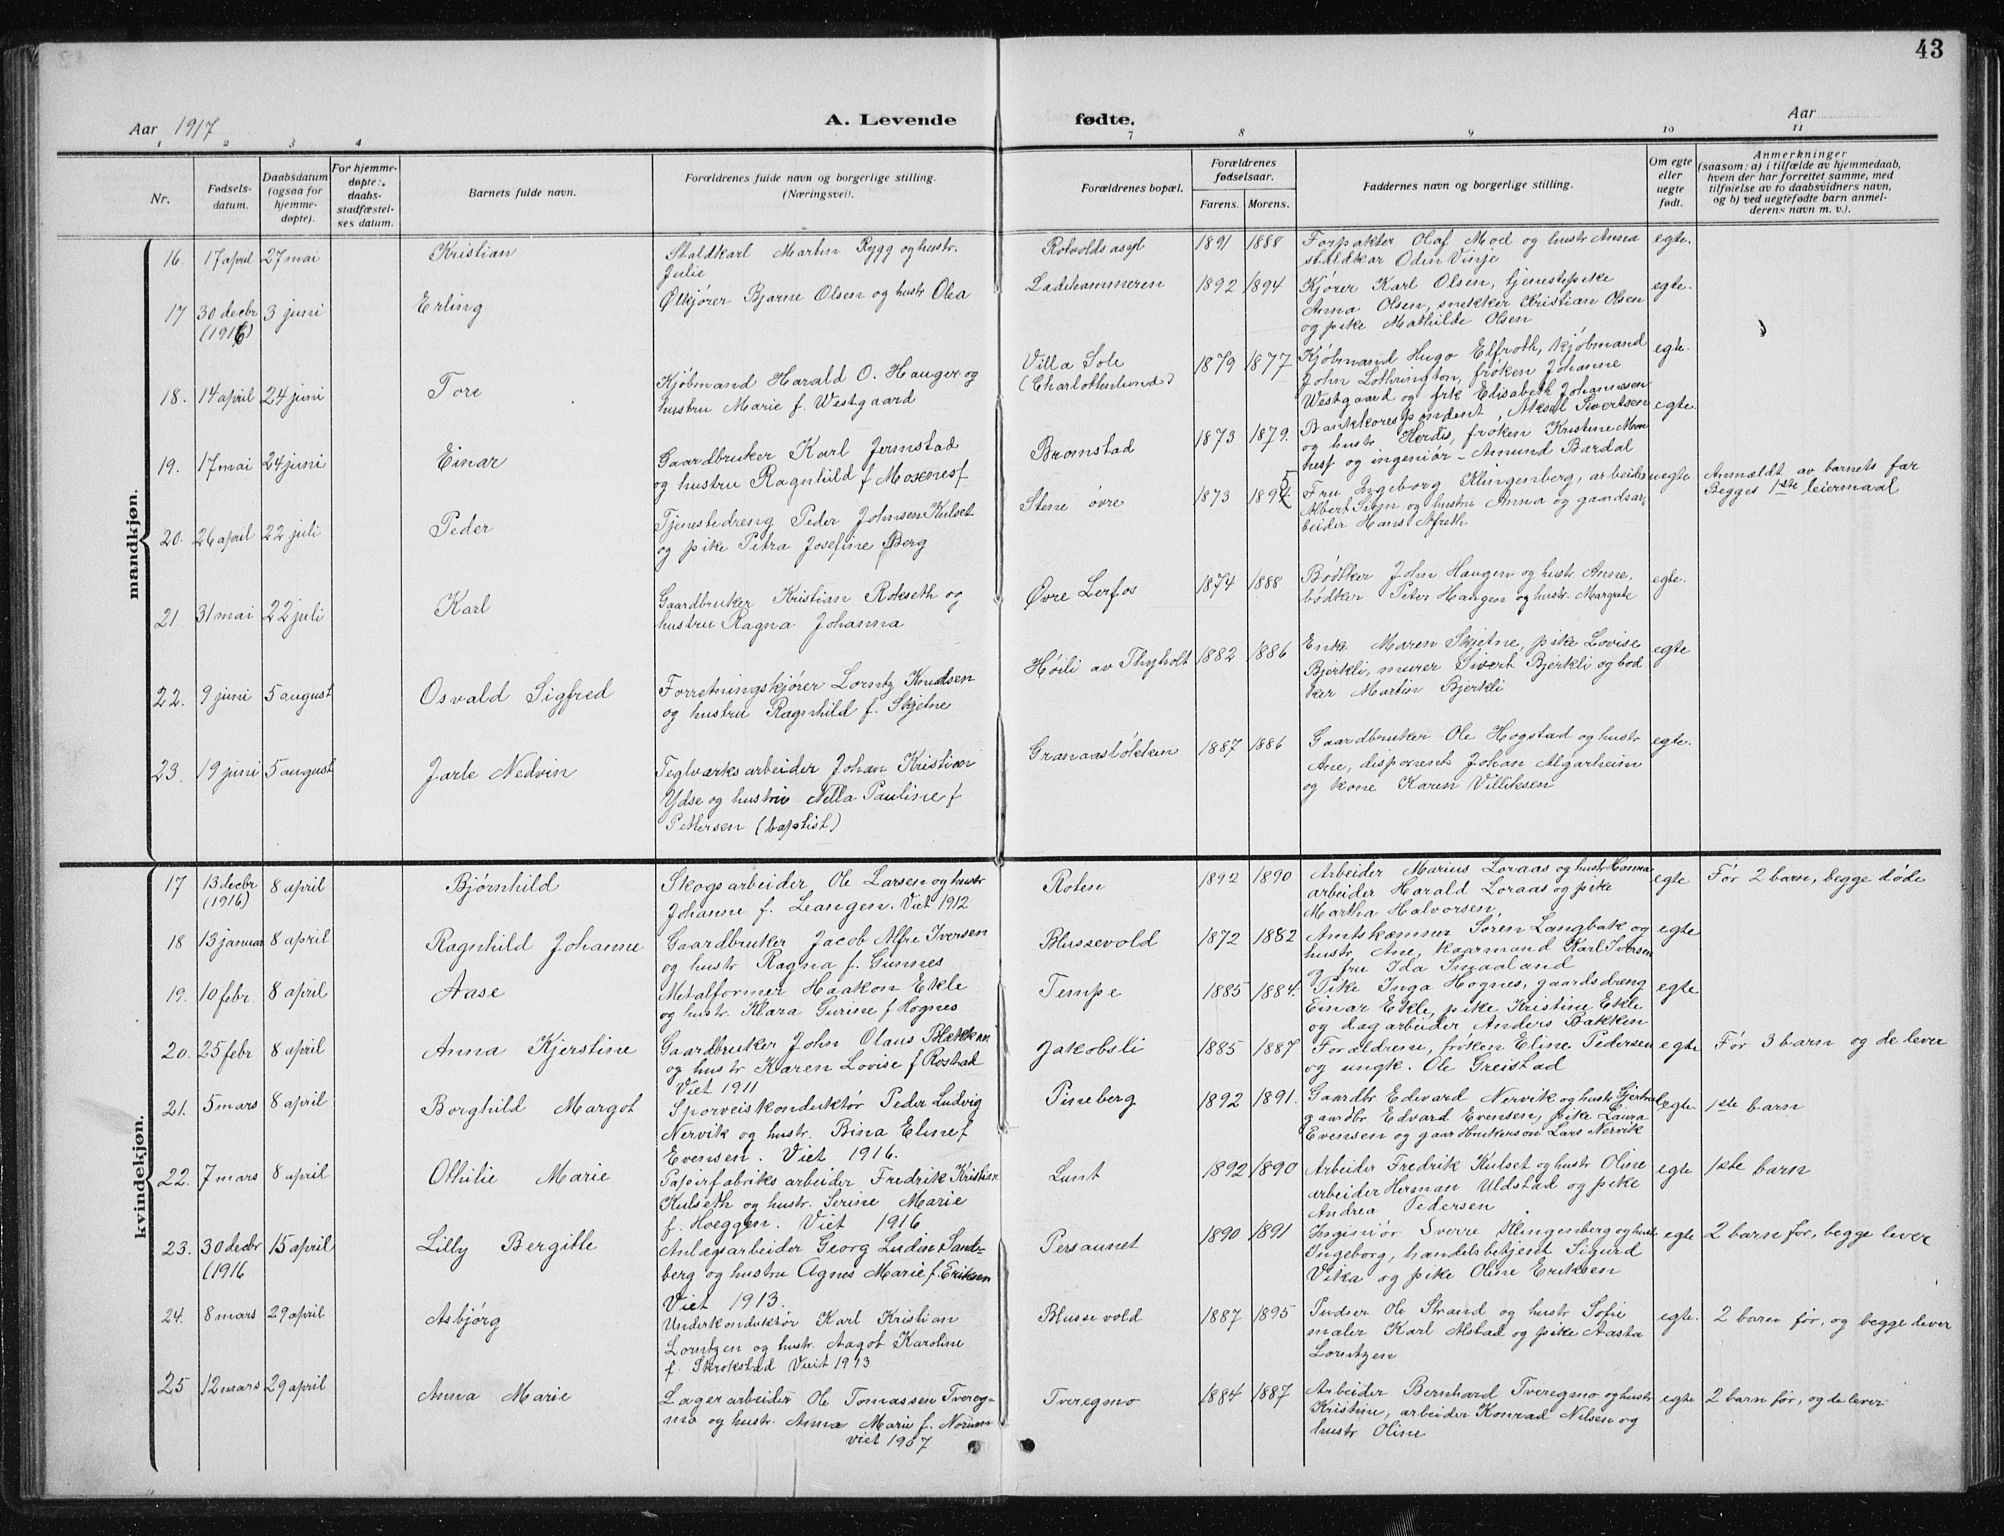 43
Aar 1917
A. Levende fødte.
Aar
1 2 3 4 7 8 9 10 11
Nr.
Fødsels-
datum.
Daabsdatum
(ogsaa for
hjemme-
døpte).
For hjemme-
døpte:
daabs-
stadfæstel-
ses datum.
Barnets fulde navn.
Forældrenes fulde navn og borgerlige stilling.
(Næringsvei).
Forældrenes bopæl.
Forældrenes
fødselsaar.
Farens. Morens.
Faddernes navn og borgerlige stilling.
Om egte
eller
uegte
født.
Anmerkninger
(saasom: a) i tilfælde av hjemmedaab,
hvem der har forrettet samme, med
tilføielse av to daabsvidners navn,
og b) ved uegtefødte barn anmel-
derens navn m. v.).
mandkjøn.
16. 17 april 27 mai Kristian
Staldkarl Martin Rygg og hustr.
Julie
Rotvolds asyl 1891 1888
Forpakter Olaf Mod og hustr Anna
staldkar Odin Vinje
egte.
17 30 decbr (1916) 3 juni Erling
Ølkjører Bjarne Olsen og hustr Olea
Ladehammeren 1892 1894
Kjører Karl Olsen, tjenestepike
Anna Olsen, snekker Kristian Olsen
og pike Mathilde Olsen
egte.
18. 14 april 24 juni Tore
Kjøbmand Harald O. Hauger og
hustru Marie f. Westgaard
Villa Sole
(Charlottenlund)
1879 1877
Kjøbmand Hugo Elfroth, kjøbmand
John Lothrington, frøken Johanne
Westgaard og frk Elisabeth Johannesen
egte.
19. 17 mai 24 juni Einar
Gaardbruker Karl Jermstad
og hustru Ragnhild f Moxenes
Bromstad 1873 1879.
Bankkorespondent, Aksel Sivertsen
og hustr Herdis, frøken Kristine Mox
nes og ingeniør Amund Bardal
egte.
20. 26 april 22 juli Peder
Tjenestedreng Peder Johnsen Kulset
og pike Petra Josefine Berg
Stene øvre 1873 1895
Fru Ingeborg Klingenberg, arbeider
Albert Sejn og hustru Anna og gaardsar-
beider Hans Afreth
uegte
Anmældt av barnets far
Begges 1ste leiermaal
21. 31 mai 22 juli Karl
Gaardbruker Kristian Rokseth og
hustru Ragna Johanna
Øvre Lerfos 1874 1888
Bødtker John Haugen og hustr. Anne,
bødker Peter Haugen og hustr. Margrete
egte.
22. 9 juni 5 august Osvald Sigfred
Forretningskjører Lorntz Knudsen
og hustru Ragnhild f. Skjetne
Høili av Thyholt 1882 1886
Enke Maren Skjetne, pike Lovise
Bjerkli, murer Sivert Bjerkli og bød
ker Martin Bjerkli
egte
23. 19 juni 5 august Jarle Nedvin
Teglværksarbeider Johan Kristian
Ydse og hustru Nella Pauline f
Pettersen (baptist)
Granaasløkken 1887 1886
Gaardbruker Ole Hogstad og hustr
Ane, disponent Johan Algarheim
og kone Karen Villiksen
egte.
kvindekjøn.
17 13 decbr (1916) 8 april Bjørnhild
Skogsarbeider Ole Larsen og hustr
Johanne f. Leangen. Viet 1912
Roten 1892 1890
Arbeider Marius Loraas og hustr Hanna
arbeider Harald Loraas og pike
Martha Halvorsen,
egte
Før 2 barn, begge døde
18 13 januar 8 april Ragnhild Johanne
Gaardbruker Jacob Alfre Iversen
og hustr Ragna f. Gunnes
Blussevold 1872 1882
Amtskæmner Søren Langbak og
hustr Ane, kaarmand Karl Iversen
og fru Ida Smaaland
egte
19. 10 febr. 8 april Aase
Metalformer Haakon Ekle
og hustr. Klara Gurine f Hognes
Tempe 1885 1884.
Pike Inga Hognes, gaardsdræng
Einar Ekle, pike Kristine Ekle
og dagarbeider Anders Bakken
egte
20. 25 febr 8 april Anna Kjerstine
Gaardbruker John Olaus Blækkan
og hustr Karen Lovise f Rostad
Viet 1911
Jakobsli 1885 1887
Forældrene, frøken Eline Pedersen
og ungk. Ole Greistad
egte
Før 3 barn og de lever
21. 5 mars 8 april Borghild Margot
Sporveiskonduktør Peder Ludvig
Nervik og hustr. Bina Eline f
Evensen. Viet 1916.
Pineberg 1892 1891.
Gaardbr. Edvard Nervik og hustr Gjertrud
gaardbr. Edvard Evensen, pike Laura
Evensen og gaardbrukersøn Lars Nervik
egte.
1ste barn
22. 7 mars 8 april Othilie Marie
Papirfabriksarbeider Fredrik Kristian
Kulseth og hustr. Serine Marie
f. Hoeggen. Viet 1916
Lunt 1892 1890
Arbeider Fredrik Kulset og hustr Oline
arbeider Herman Uldstad og pike
Andrea Pedersen
egte
1ste barn
23. 30 decbr (1916 15 april Lilly Bergitte
Anlægsarbeider Georg Ludin Sand-
berg og hustru Agnes Marie f. Eriksen
Viet 1913.
Persaunet 1890 1891
Ingeniør Sverre Klingenberg og hustr
Ingeborg, handelsbetjent Sigurd
Vika og pike Oline Eriksen
egte
2 barn før, begge lever
24. 8 mars 29 april Asbjørg
Underkonduktør Karl Kristian
Lorntzen og hustr. Aagot Karoline
f. Skrokstad Viet 1913
Blussevold 1887 1895
Pudser Ole Strand og hustr Sofie
maler Karl Alstad og pike Aasta
Lorntzen
egte.
2 barn før, og begge lever
25 12 mars 29 april Anna Marie
Lagerarbeider Ole Tomassen Tvereg-
mo og hustr. Anna Marie f. Norum
viet 1907
Tveregmo 1884 1887
Arbeider Bernhard Tveregmo og hustr
Kristine, arbeider Konrad Nilsen og
hustr Oline
egte
2 barn før, og de lever